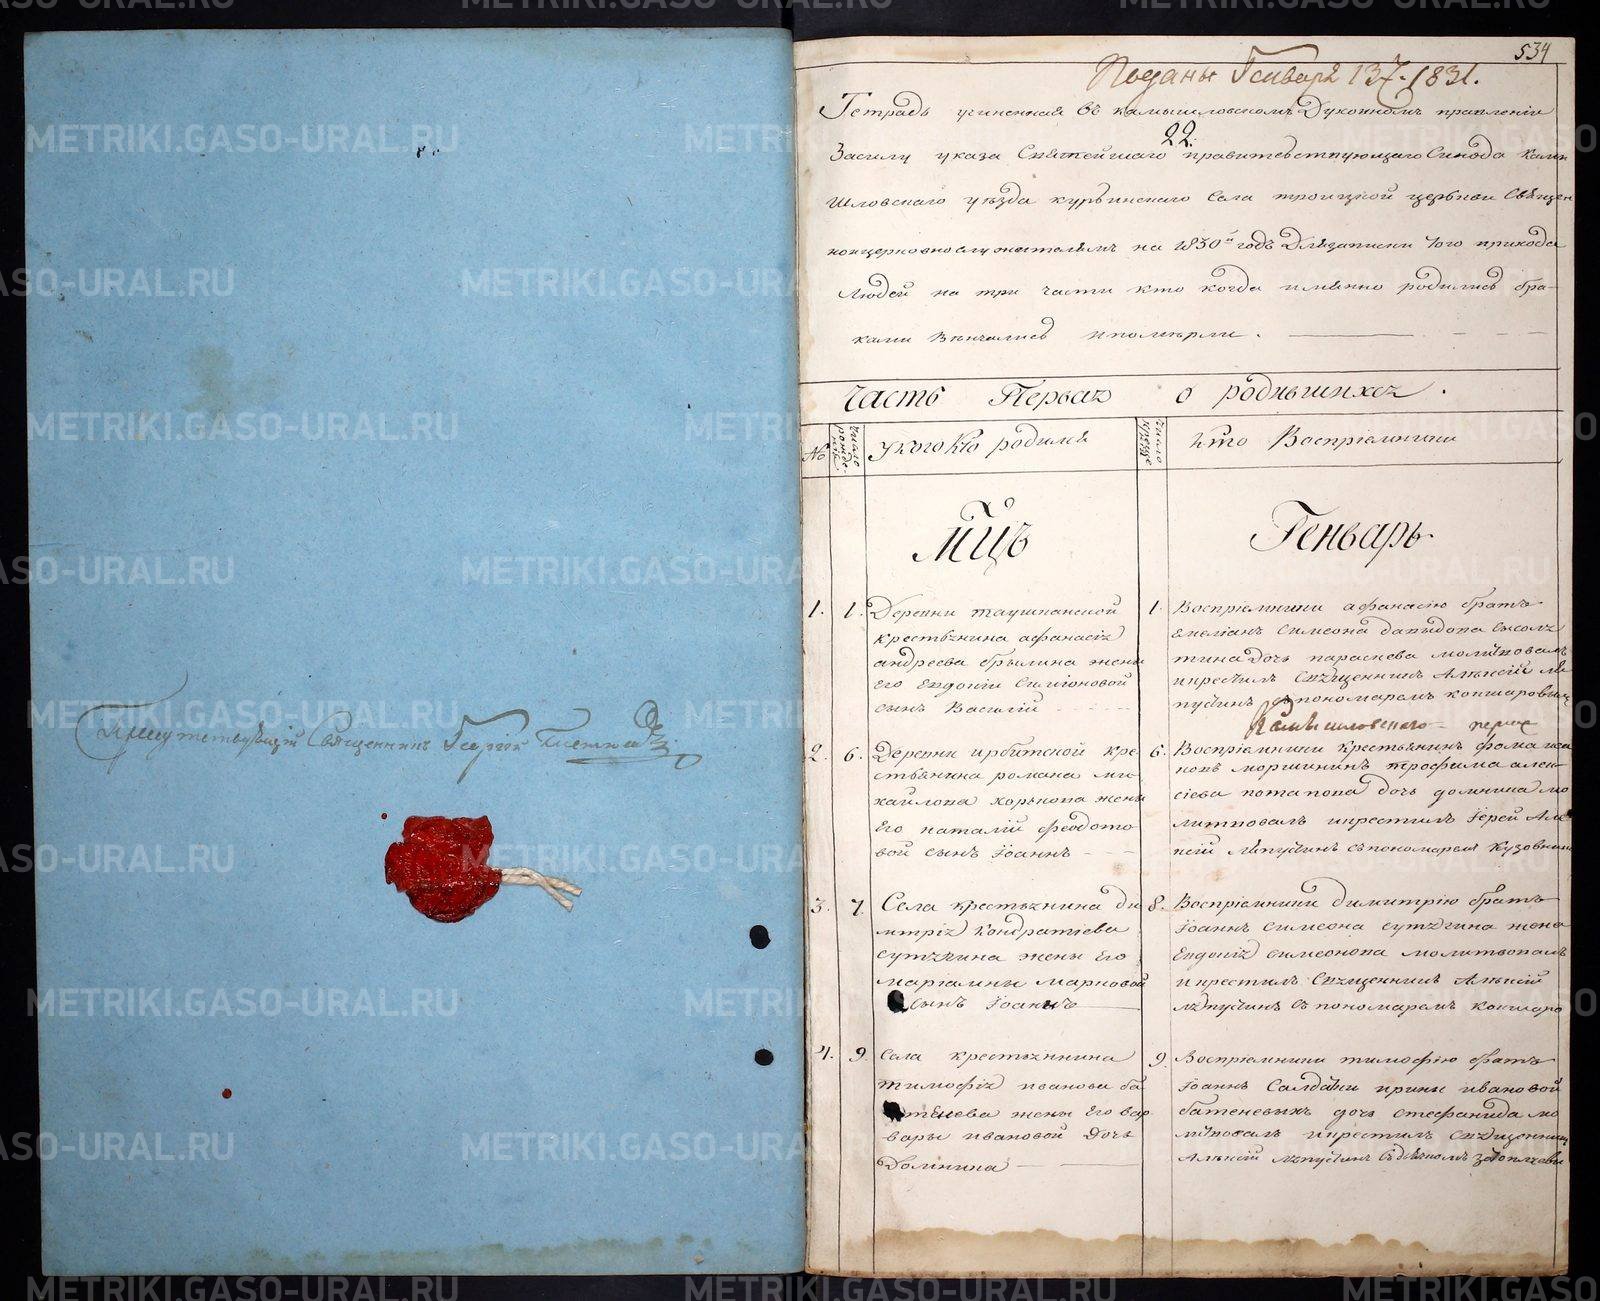 Присутствующій Священникъ Георгій
534
Поданы Генваря 13 1831.
Тетрадь учиненная въ камышловскомъ Духовномъ правленіи
22.
Засилу указа Святейшаго правительствующаго Синода камы
шловскаго уѣзда курьинскаго села троицкой церькви Священ
ноцерковнослужителямъ на 1830й годъ Длязаписки того прихода
людей на три части кто когда имянно родились бра-
ками Венчались ипомерли.
Часть Первая о родившихся.
№ Число рожде-нія Укого Кто родился Число креще Кто Воспріемники
Мцъ Генварь
1. 1. Деревни таушканской
крестьянина афанасія
андреева брылина жены
его Евдокіи Симіоновой
сынъ Василій
1. Воспріемники афанасію братъ
емеліанъ Симеона давыдова сысол
тина дочь параскева молитвовалъ
икрестилъ Священникъ Алексій
съ пономаремъ кокшаровымъ
Камышловскаго
2. 6. Деревни ирбитской кре-
стьянина романа ми-
хайлова хорькова жены
Его наталіи феодото
вой сынъ Іоаннъ
6. Воспріемники крестьянинъ фома иса
ковъ моршининъ трофима алек-
сіева потапова дочь домника мо
литвовалъ икрестилъ Іерей Але
ксій съ пономаремъ Кузовник
3. 7. Села крестьянина ди
митрія Кондратіева
сутягина жены Его
маріамны марковой
сынъ Іоаннъ
8. Воспріемники димитрію братъ
Іоаннъ симеона сутягина жена
Евдокія симеонова молитвовалъ
икрестилъ Священникъ Алексій
съ пономаремъ Кокшаро
4. 9. Села крестьянина
тимофія иванова ба
тенева жены Его вар
вары ивановой дочь
Домника
9. Воспріемники тимофію братъ
Іоаннъ Салдатки ирины ивановой
батеневыхъ дочь стефанида мо
литвовалъ икрестилъ Священник
Алексій
METRIKI.GASO-URAL.RU